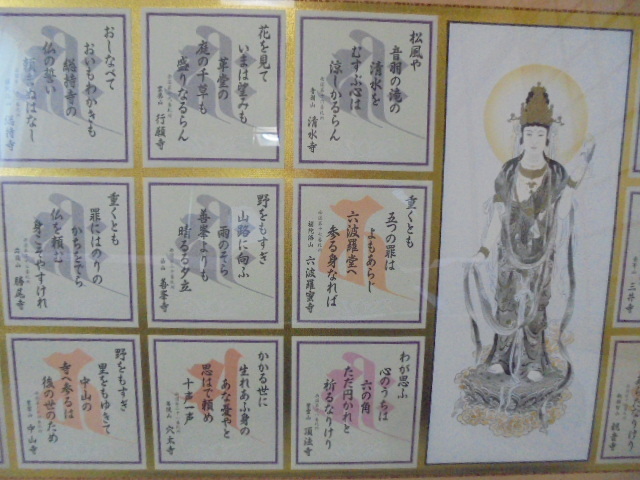 松風や
音羽の滝の
清水を
むすぶ心は
涼しかるらん
音羽山 清水寺
花を見て
いまは望みも
革堂の
庭の千草も
盛りなるらん
霊麀山 行願寺
おしなべて
おいもわかきも
総持寺の
仏の誓い
頼まぬはなし
総持寺
重くとも
五つの罪は
よもあらじ
六波羅堂へ
参る身なれば
補陀洛山 六波羅蜜寺
野をもすぎ
山路に向ふ
雨のそら
善峯よりも
晴るる夕立
西山 善峯寺
重くとも
罪にはのりの
かちをてら
仏を頼ぶ
身こそやすけれ
応頂山 勝尾寺
わが思ふ
心のうちは
六の角
ただ円かれと
祈るなりけり
紫雲山 頂法寺
かかる世に
生れあふ身の
あな憂やと
思はで頼め
十声一声
菩提山 穴太寺
野をもすぎ
里をもゆきて
中山の
寺へ参るは
後の世のため
紫雲山 中山寺
三井寺
なりけり
観音寺